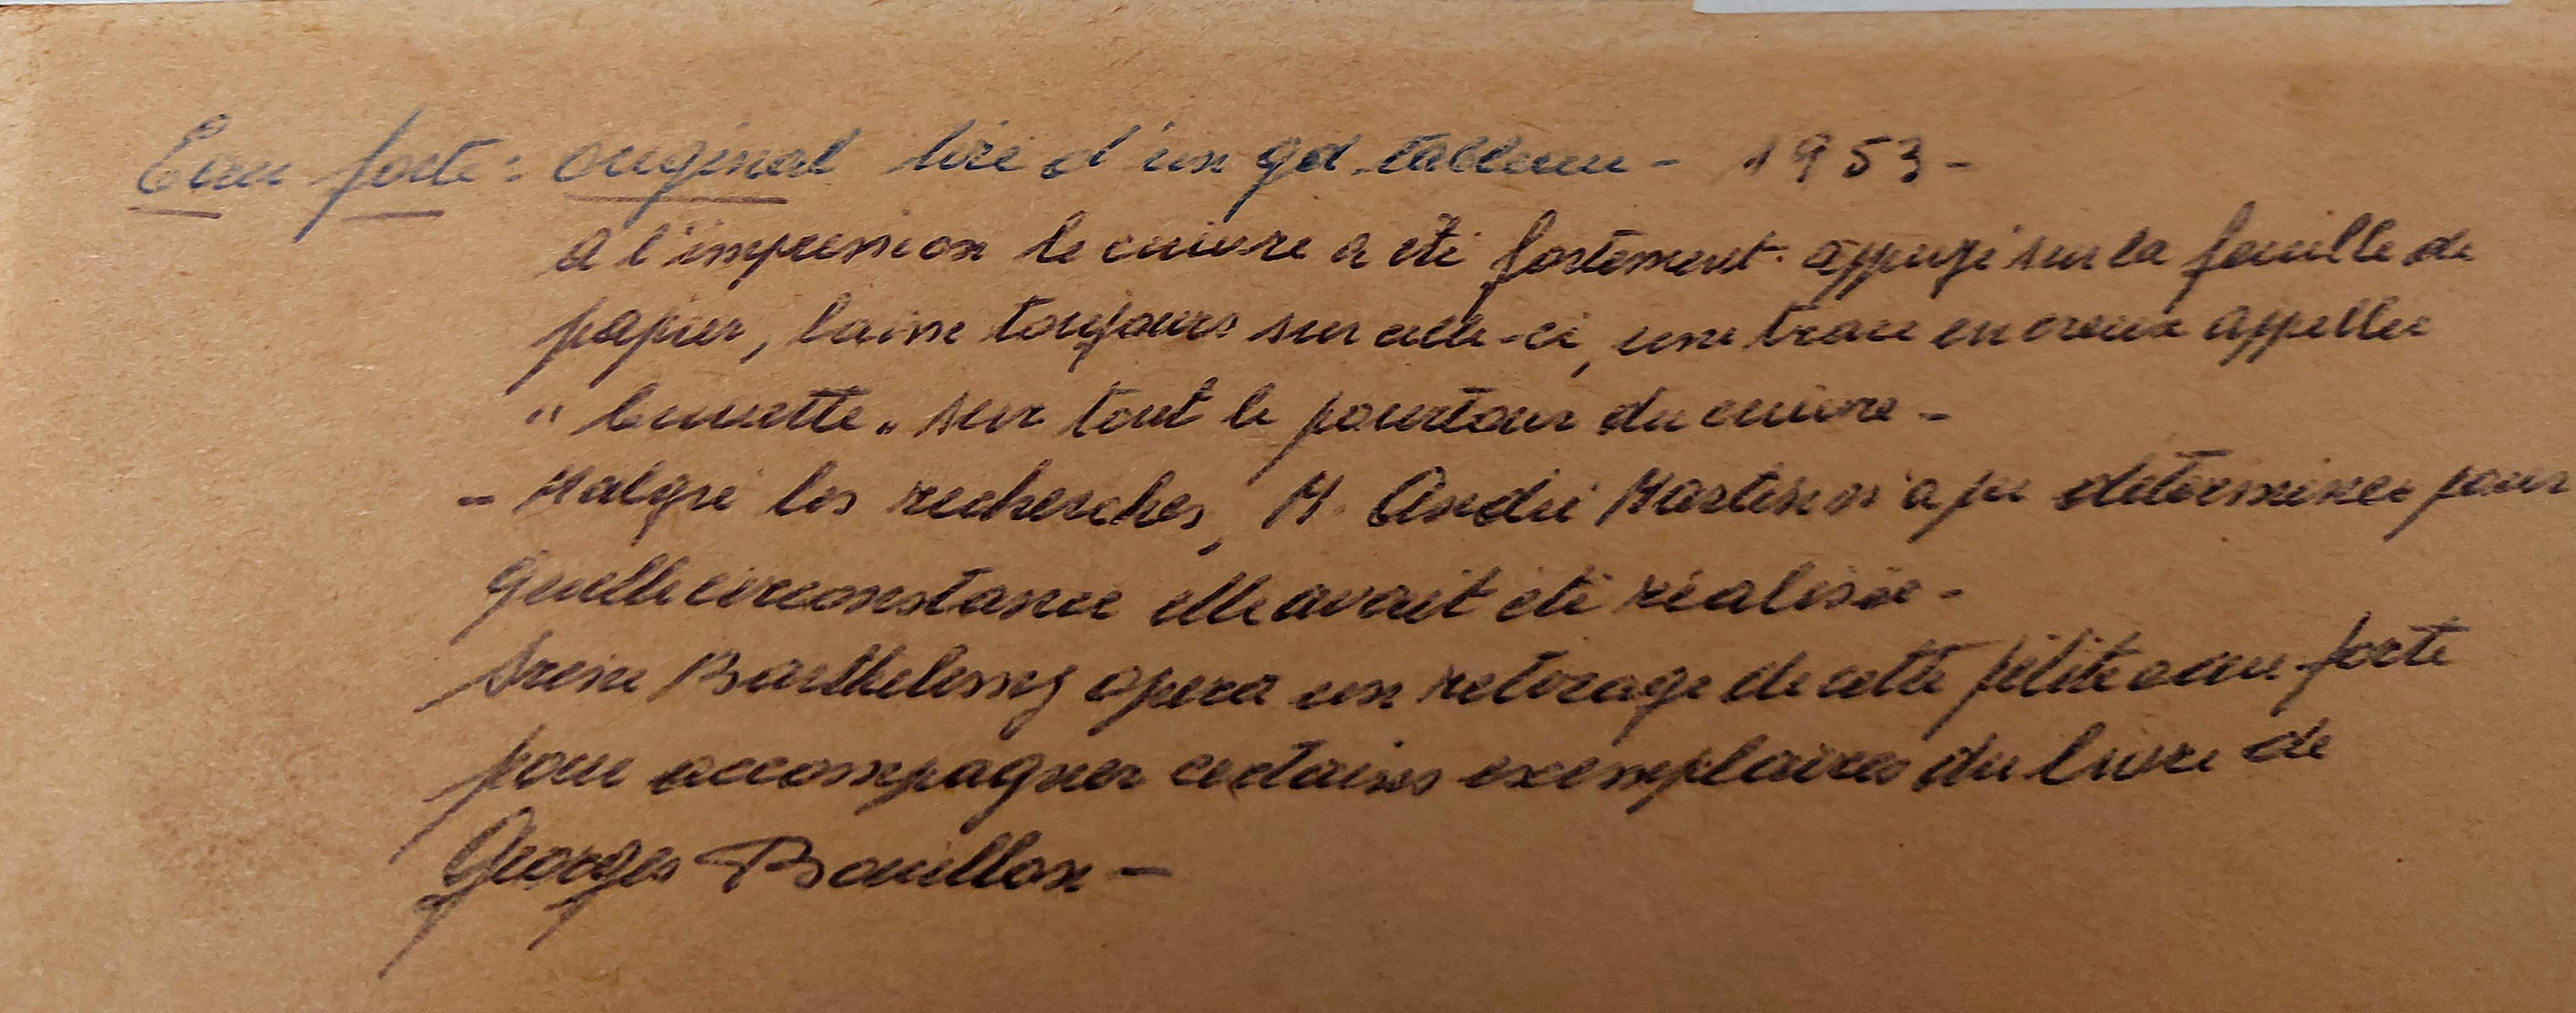 Eau forte : original tiré d'un gd tableau - 1953 -
A l'impression le cuivre a été fortement appuyé sur la feuille de
papier, laisse toujours sur celle-ci, une trace en creux appellee
" cuvette " sur tout le pourtour du cuivre -
- Malgré les recherches, M. André Martin n'a pu determiner pour
quelle circonstance elle avait été réalisée -
Irène Barthelemy opera un retirage de cette petite eau forte
pour accompagner certains exemplaires du livre de
Georges Bouillon -